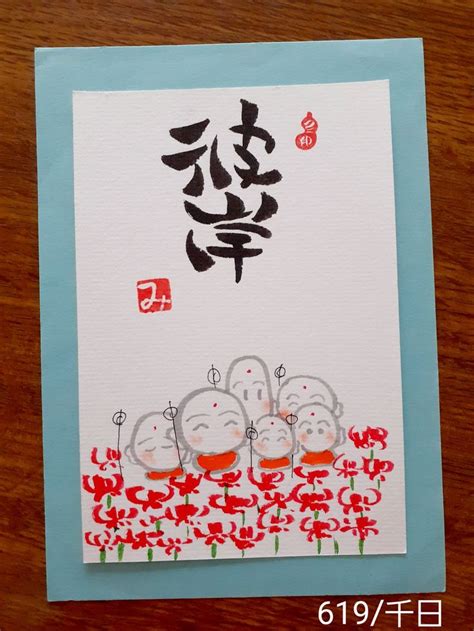 彼岸
み
619/千日